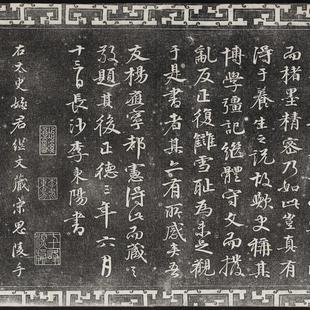 而楮墨精容乃如此豈真有
得于養生之説故歟史稱其
博學彊記繼體守文而撥
亂反正復雠雪耻為未足觀
于是書者其亦有所感矣吾
友楊應寧都憲得此而藏之
敬題其後正德三年六月
十三日長沙李東陽書
右太史姚君繼文藏宗思陵手